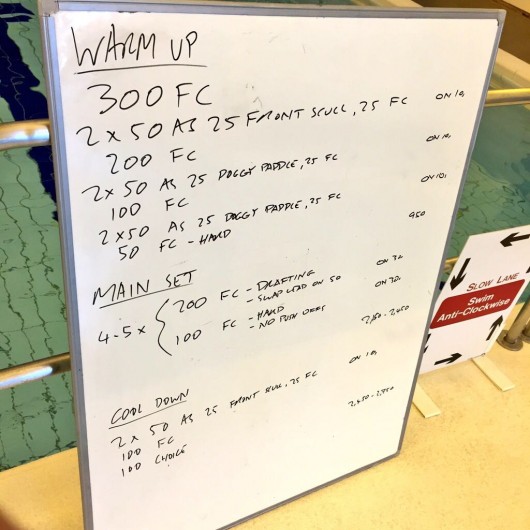 WARM UP
300 FC
2 x 50 AS 25 FRONT SCULL, 25 FC ON 10,
200 FC ON 10,
2 x 50 AS 25 DOGGY PADDLE, 25 FC
100 FC ON 10,
2 x 50 AS 25 DOGGY PADDLE, 25 FC
50 FC - HARD 950
MAIN SET
4-5 x { 200 FC - DRAFTING ON 30
- SWAP LEAD ON 50
100 FC - HARD ON 30
- NO PUSH OFFS
COOL DOWN
2 x 50 AS 25 FRONT SCULL, 25 FC ON 10,
100 FC
100 CHOICE
SLOW LANE
Swim
Anti-Clockwise